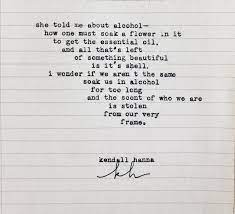 she told me about alcohol—
how one must soak a flower in it
to get the essential oil,
and all that's left
of something beautiful
is it's shell.
i wonder if we aren t the same
soak us in alcohol
for too long
and the scent of who we are
is stolen
from our very
frame.
kendall hanna
kh